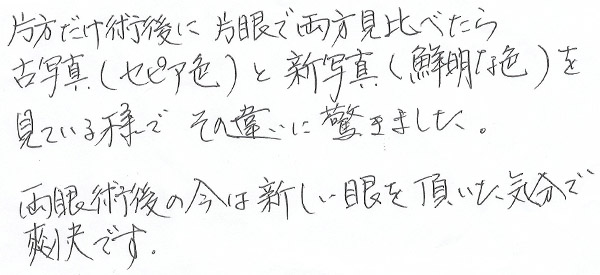 片方だけ術後に 片眼で両方見比べたら
古写真(セピア色)と新写真(鮮明な色)を
見ている様で その違いに驚きました。
両眼術後の今は新しい眼を頂いた気分で
爽快です。